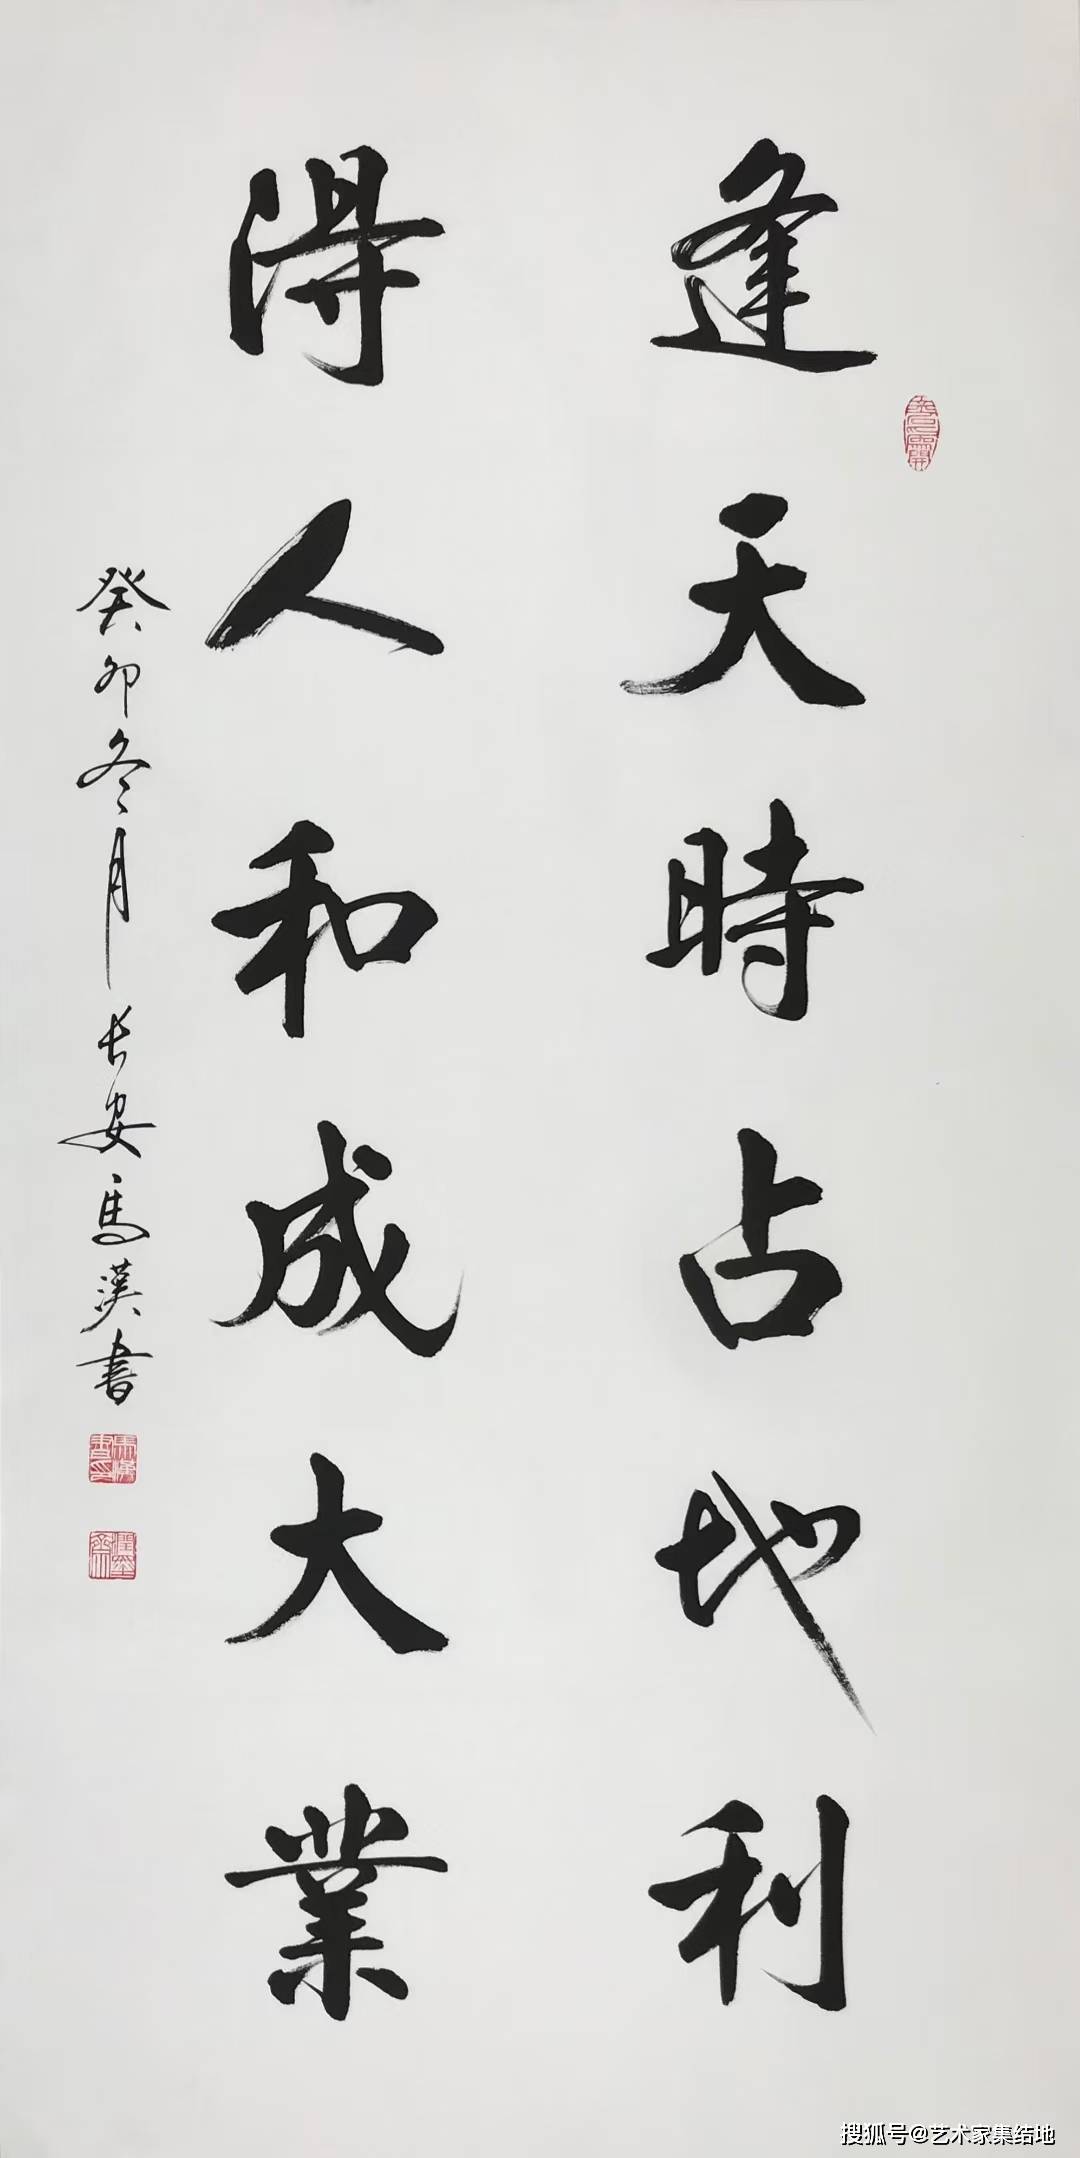 逢天時占地利
得人和成大業
癸卯冬月長安馬漢書
搜狐号@艺术家集结地